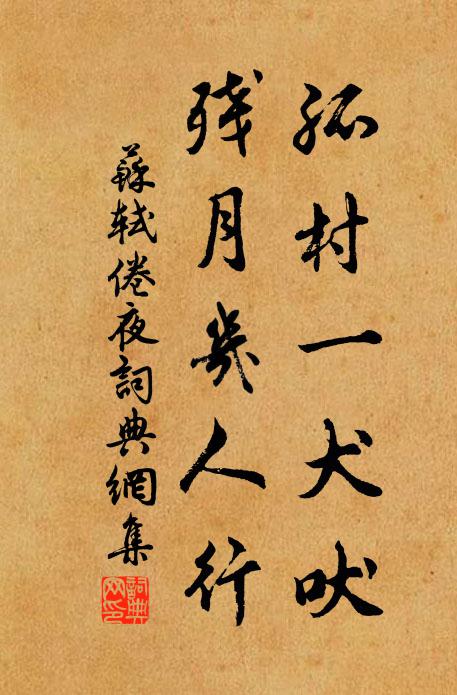 孤村一犬吠
殘月幾人行
蘇軾倦夜詞典網集
詞典網印